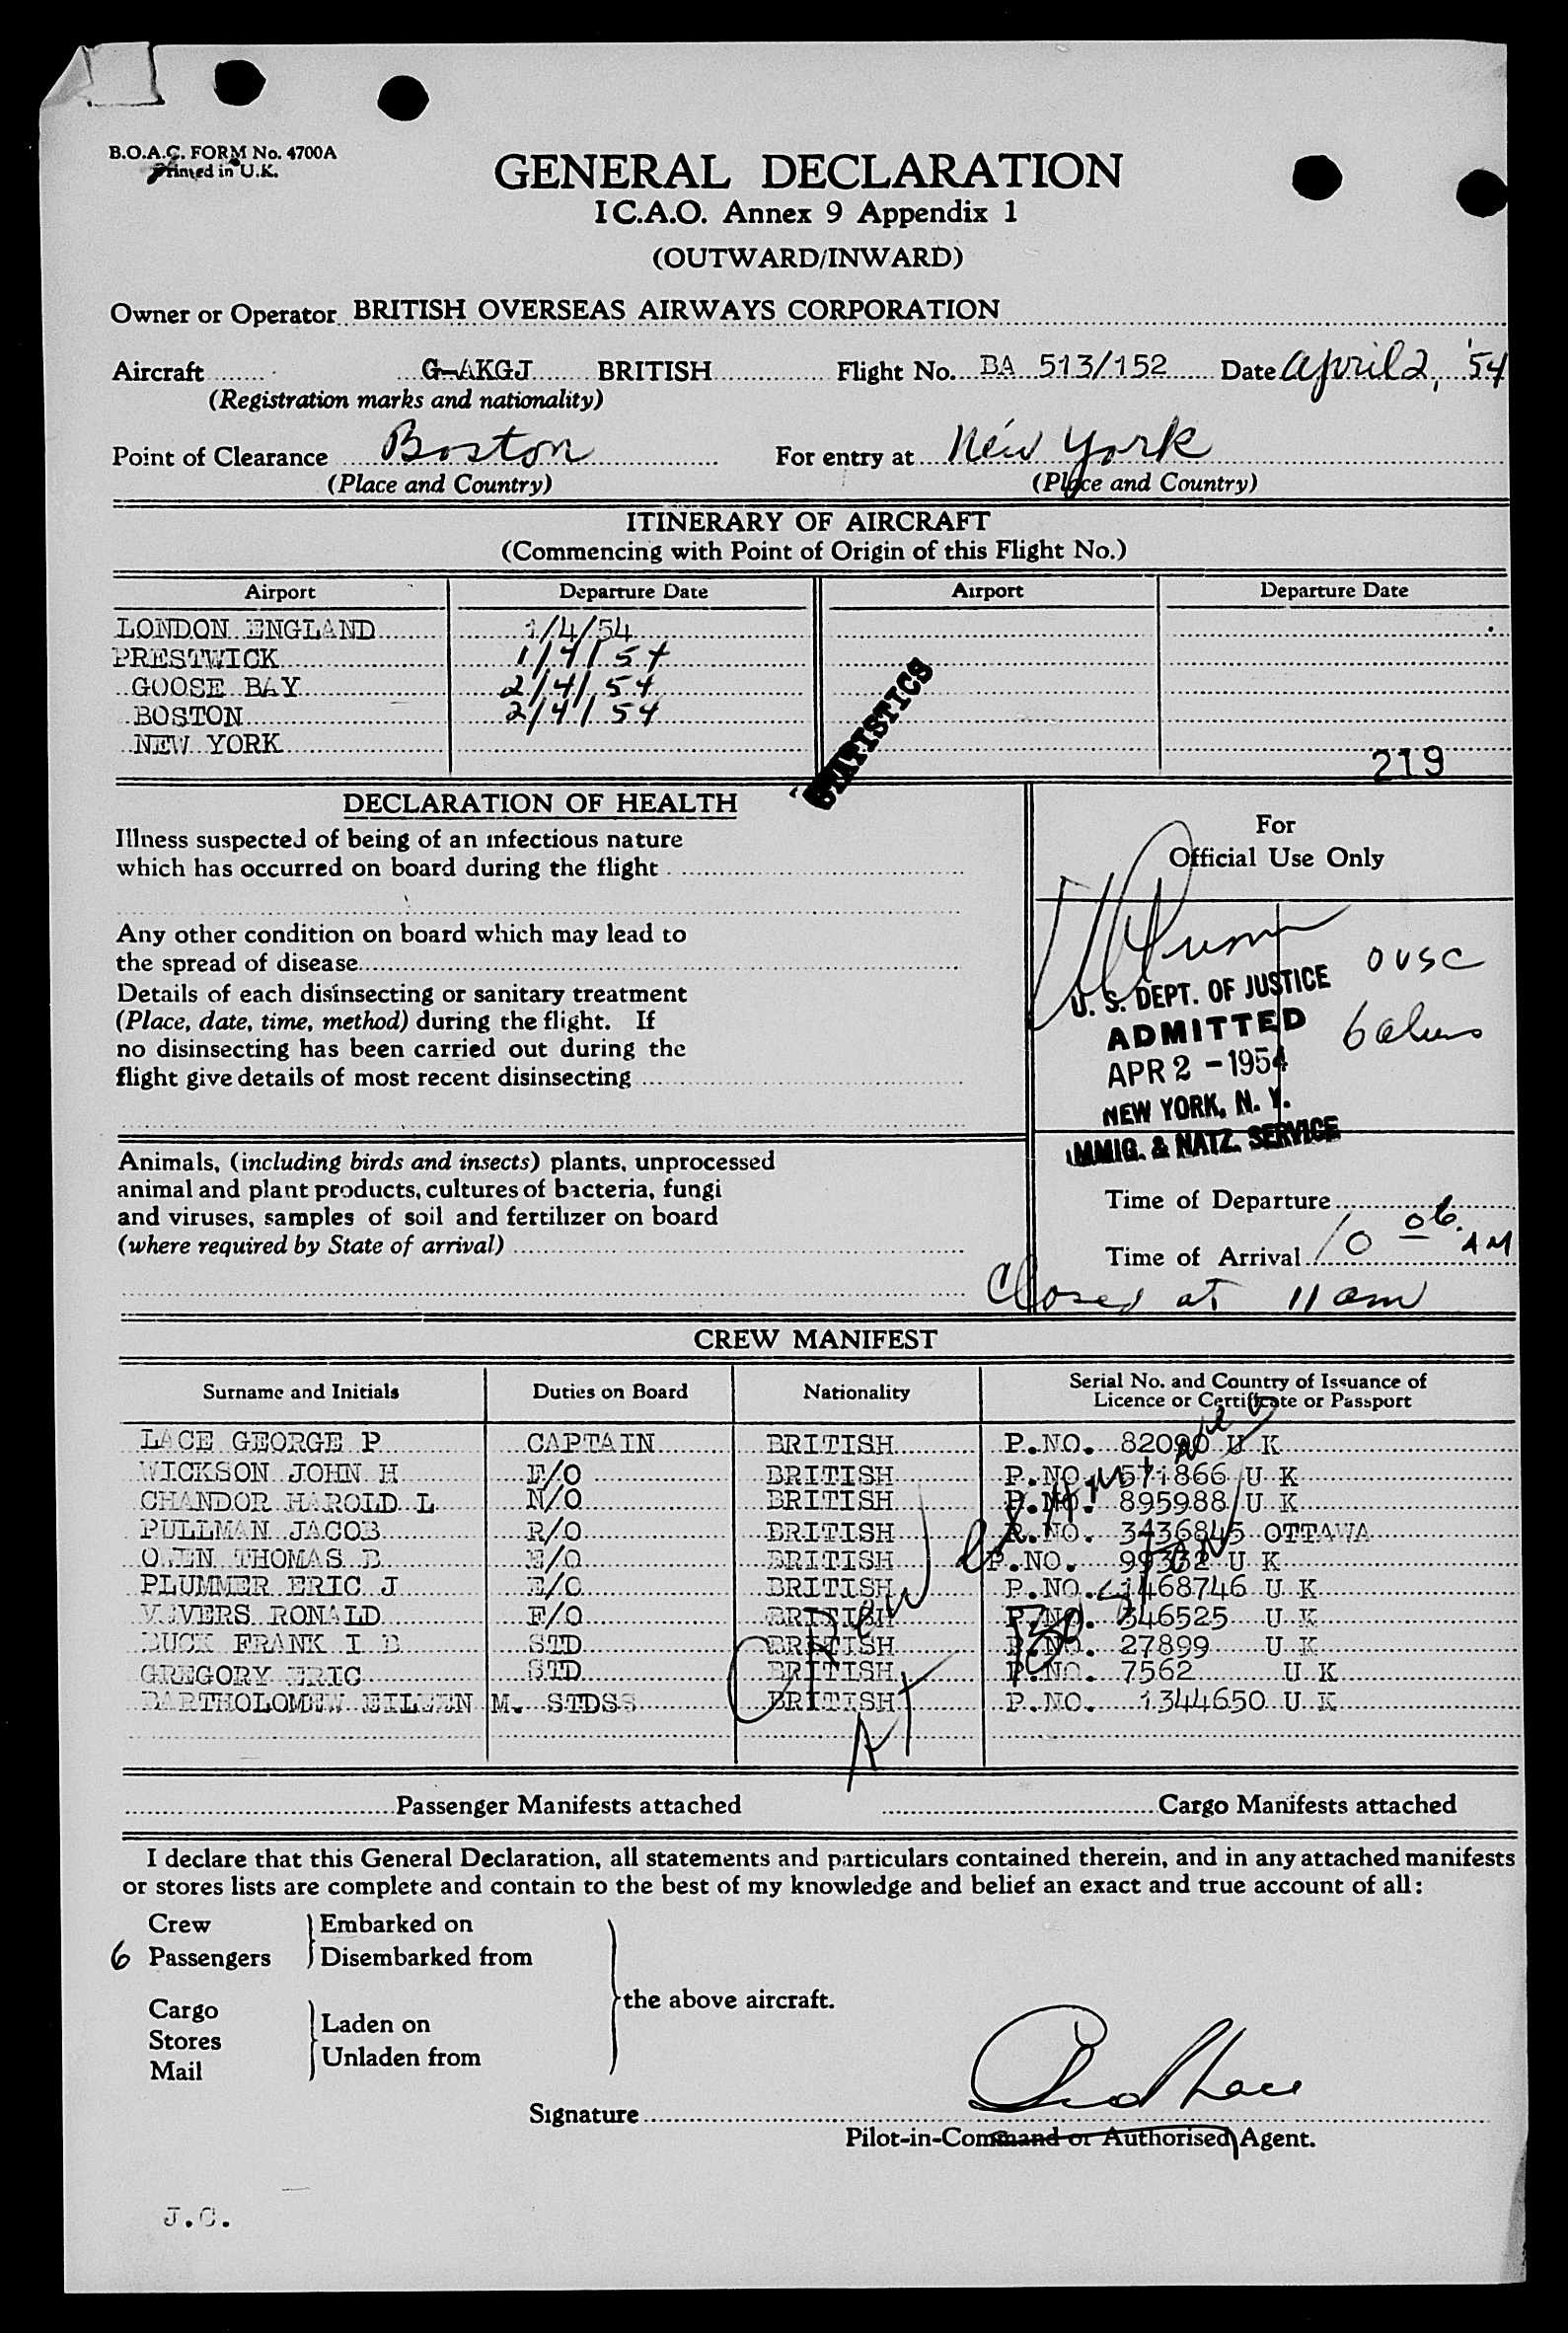 B.O.A.C. FORM No. 4700A
Printed in U.K.
GENERAL DECLARATION
I C.A.O. Annex 9 Appendix 1
(OUTWARD/INWARD)
Owner or Operator BRITISH OVERSEAS AIRWAYS CORPORATION
Aircraft G-AKGJ BRITISH Flight No. BA 513/152 Date April 2, '54
(Registration marks and nationality)
Point of Clearance Boston For entry at New York
(Place and Country) (Place and Country)
ITINERARY OF AIRCRAFT
(Commencing with Point of Origin of this Flight No.)
Airport Departure Date Airport Departure Date
LONDON ENGLAND 1/4/54
PRESTWICK 1/4/54
GOOSE BAY 2/4/54
BOSTON 2/4/54
NEW YORK
STATISTICS
219
DECLARATION OF HEALTH
Illness suspected of being of an infectious nature
which has occurred on board during the flight
Any other condition on board which may lead to
the spread of disease
Details of each disinsecting or sanitary treatment
(Place, date, time, method) during the flight. If
no disinsecting has been carried out during the
flight give details of most recent disinsecting
Animals, (including birds and insects) plants, unprocessed
animal and plant products, cultures of bacteria, fungi
and viruses, samples of soil and fertilizer on board
(where required by State of arrival)
For
Official Use Only
0 USC
6 aliens
U. S. DEPT. OF JUSTICE
ADMITTED
APR 2 - 1954
NEW YORK, N. Y.
IMMIG. & NATZ. SERVICE
Time of Departure
Time of Arrival 10 06 AM
Closed at 11 am
CREW MANIFEST
Surname and Initials Duties on Board Nationality Serial No. and Country of Issuance of
Licence or Certificate or Passport
LACE GEORGE P CAPTAIN BRITISH P.NO. 82090 U K
WICKSON JOHN H F/O BRITISH P.NO. 571866 U K
CHANDOR HAROLD L N/O BRITISH P.NO. 895988 U K
PULLMAN JACOB R/O BRITISH P.NO. 3436845 OTTAWA
OWEN THOMAS B E/O BRITISH P.NO. 99332 U K
PLUMMER ERIC J E/O BRITISH P.NO. 1468746 U K
VEVERS RONALD F/O BRITISH P.NO. 346525 U K
BUCK FRANK I B STD BRITISH P.NO. 27899 U K
GREGORY ERIC STD BRITISH P.NO. 7562 U K
BARTHOLOMEW EILEEN M. STDSS BRITISH P.NO. 1344650 U K
Crew
At Boston
Passenger Manifests attached Cargo Manifests attached
I declare that this General Declaration, all statements and particulars contained therein, and in any attached manifests
or stores lists are complete and contain to the best of my knowledge and belief an exact and true account of all:
Crew Embarked on
6 Passengers Disembarked from
the above aircraft.
Cargo
Stores
Mail
Laden on
Unladen from
Signature
Pilot-in-Command or Authorised Agent.
J.C.